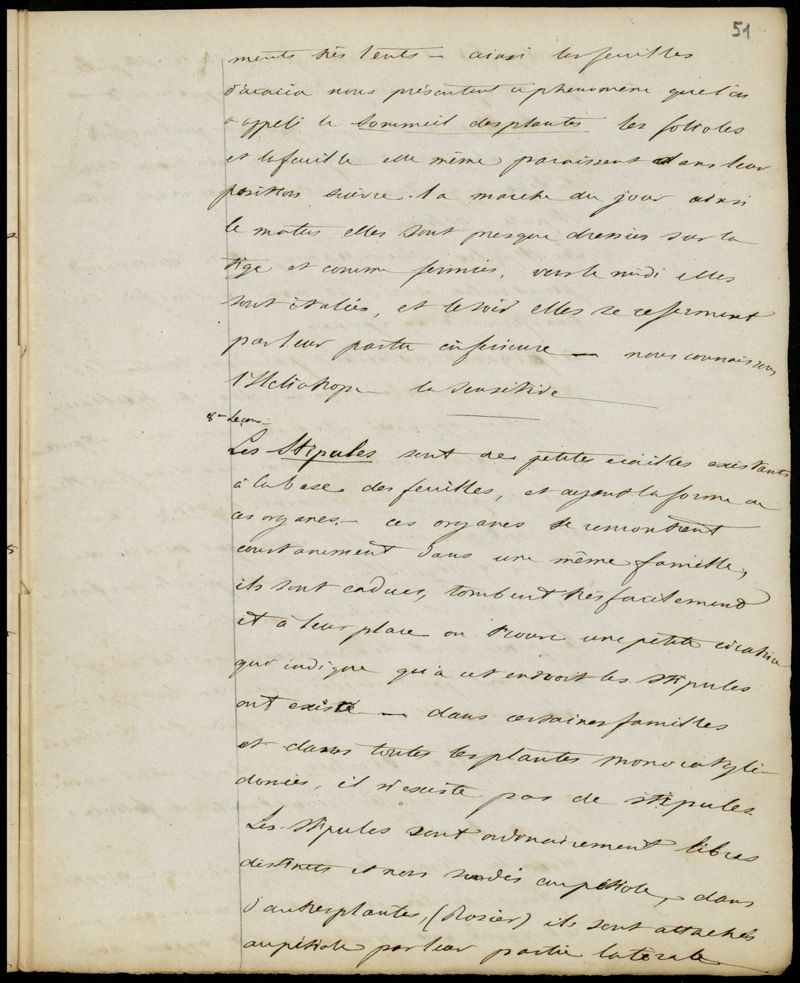 51
ments très lents – ainsi les feuilles
d'acacia nous présentent ce phénomène que l'on
a appelé le sommeil des plantes les folioles
et la feuille elle même paraissent dans leur
position suivre la marche du jour ainsi
le matin elles sont presque dressées sur la
tige et comme fermées, vers le midi elles
sont étalées, et le soir elles se referment
par leur partie inférieure — nous connaissons
l'Héliotrope la sensitive
8me Leçon
Les Stipules sont de petites écailles existants
à la base des feuilles, et ayant la forme de
ces organes – ces organes se remontrent
constamment dans une même famille,
ils sont caducs, tombent très facilement
et à leur place on trouve une petite cicatrice
qui indique qu'à cet endroit les stipules
ont existé — dans certaines familles
et dans toutes les plantes monocotylé-
donées, il n'existe pas de stipules.
Les stipules sont ordinairement libres
distincts et non soudés au pétiole, dans
d'autres plantes, (Rosier) ils sont attachés
au pétiole par leur partie latérale